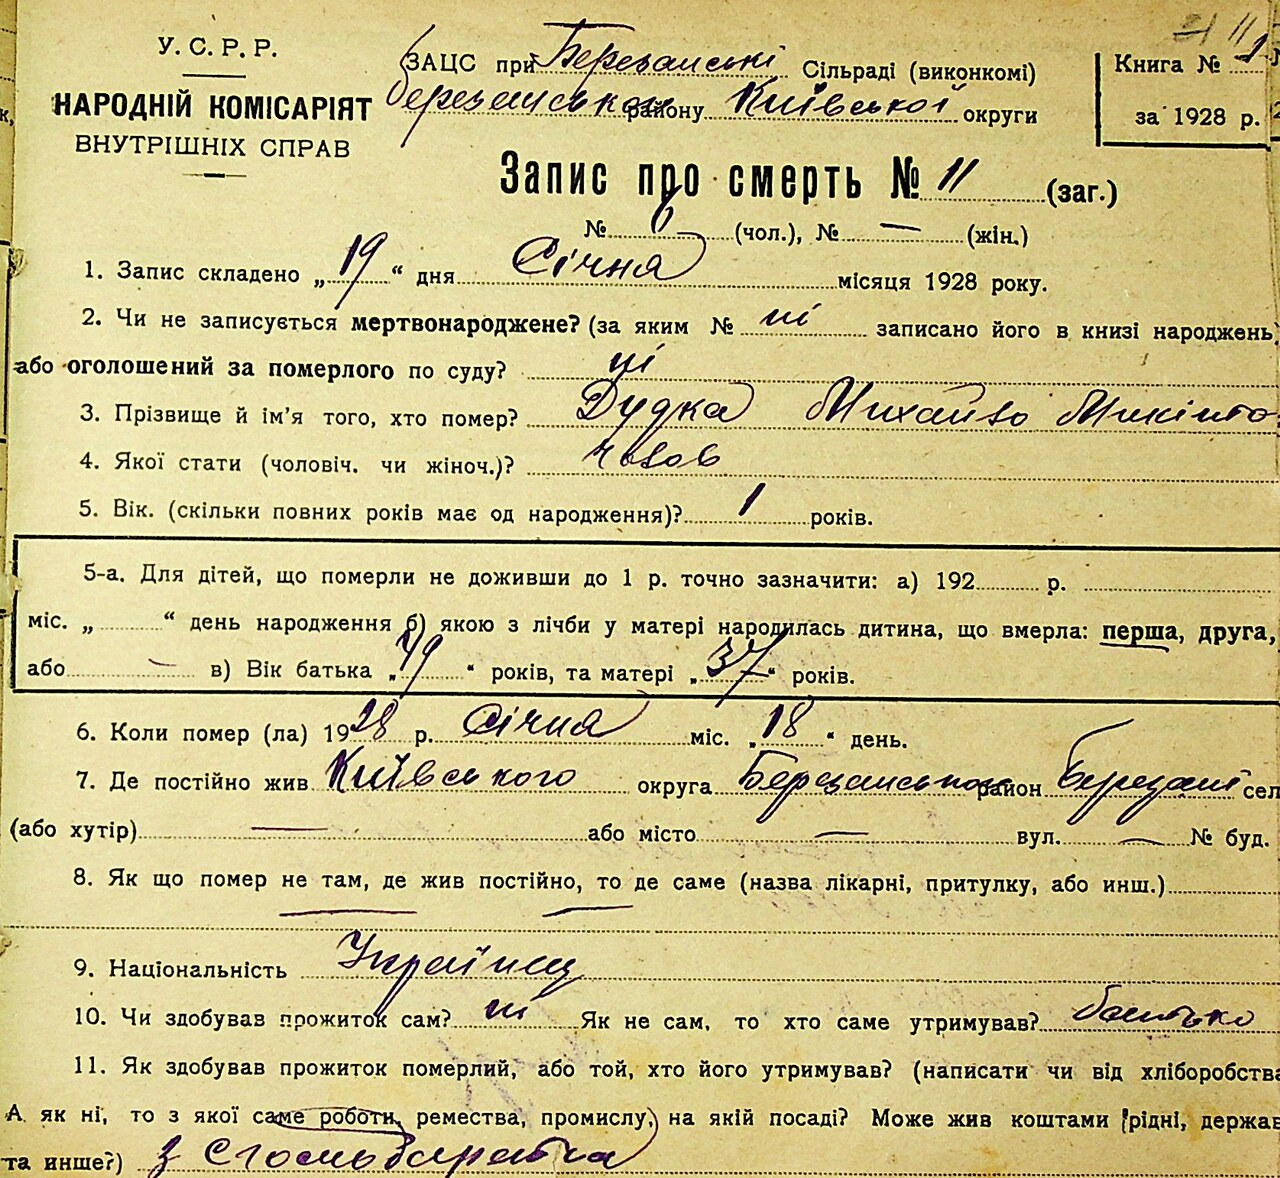 У. С. Р. Р.
НАРОДНІЙ КОМІСАРІЯТ
ВНУТРІШНІХ СПРАВ
ЗАЦС при Березанські Сільраді (виконкомі)
Березанського району Київської округи
Книга № 1
за 1928 р.
Запис про смерть № 11 (заг.)
№ 6 (чол.), № — (жін.)
1. Запис складено „19“ дня Січня місяця 1928 року.
2. Чи не записується мертвонароджене? (за яким № ні записано його в книзі народжень,
або оголошений за померлого по суду? ні
3. Прізвище й ім’я того, хто помер? Дудка Михайло
4. Якої стати (чоловіч. чи жіноч.)? чолов
5. Вік. (скільки повних років має од народження)? 1 років.
5-а. Для дітей, що померли не доживши до 1 р. точно зазначити: а) 192 р.
міс. „ “ день народження б) якою з лічби у матері народилась дитина, що вмерла: перша, друга,
або — в) Вік батька „49“ років, та матері „37“ років.
6. Коли помер (ла) 1928 р. Січня міс. „18“ день.
7. Де постійно жив Київського округа Березанського район Березані сел
(або хутір) — або місто — вул. — № буд.
8. Як що помер не там, де жив постійно, то де саме (назва лікарні, притулку, або инш.)
9. Національність Українец
10. Чи здобував прожиток сам? ні Як не сам, то хто саме утримував? батько
11. Як здобував прожиток померлий, або той, хто його утримував? (написати чи від хліборобства
А як ні, то з якої саме роботи, ремества, промислу, на якій посаді? Може жив коштами (рідні, держав
та инше?) з